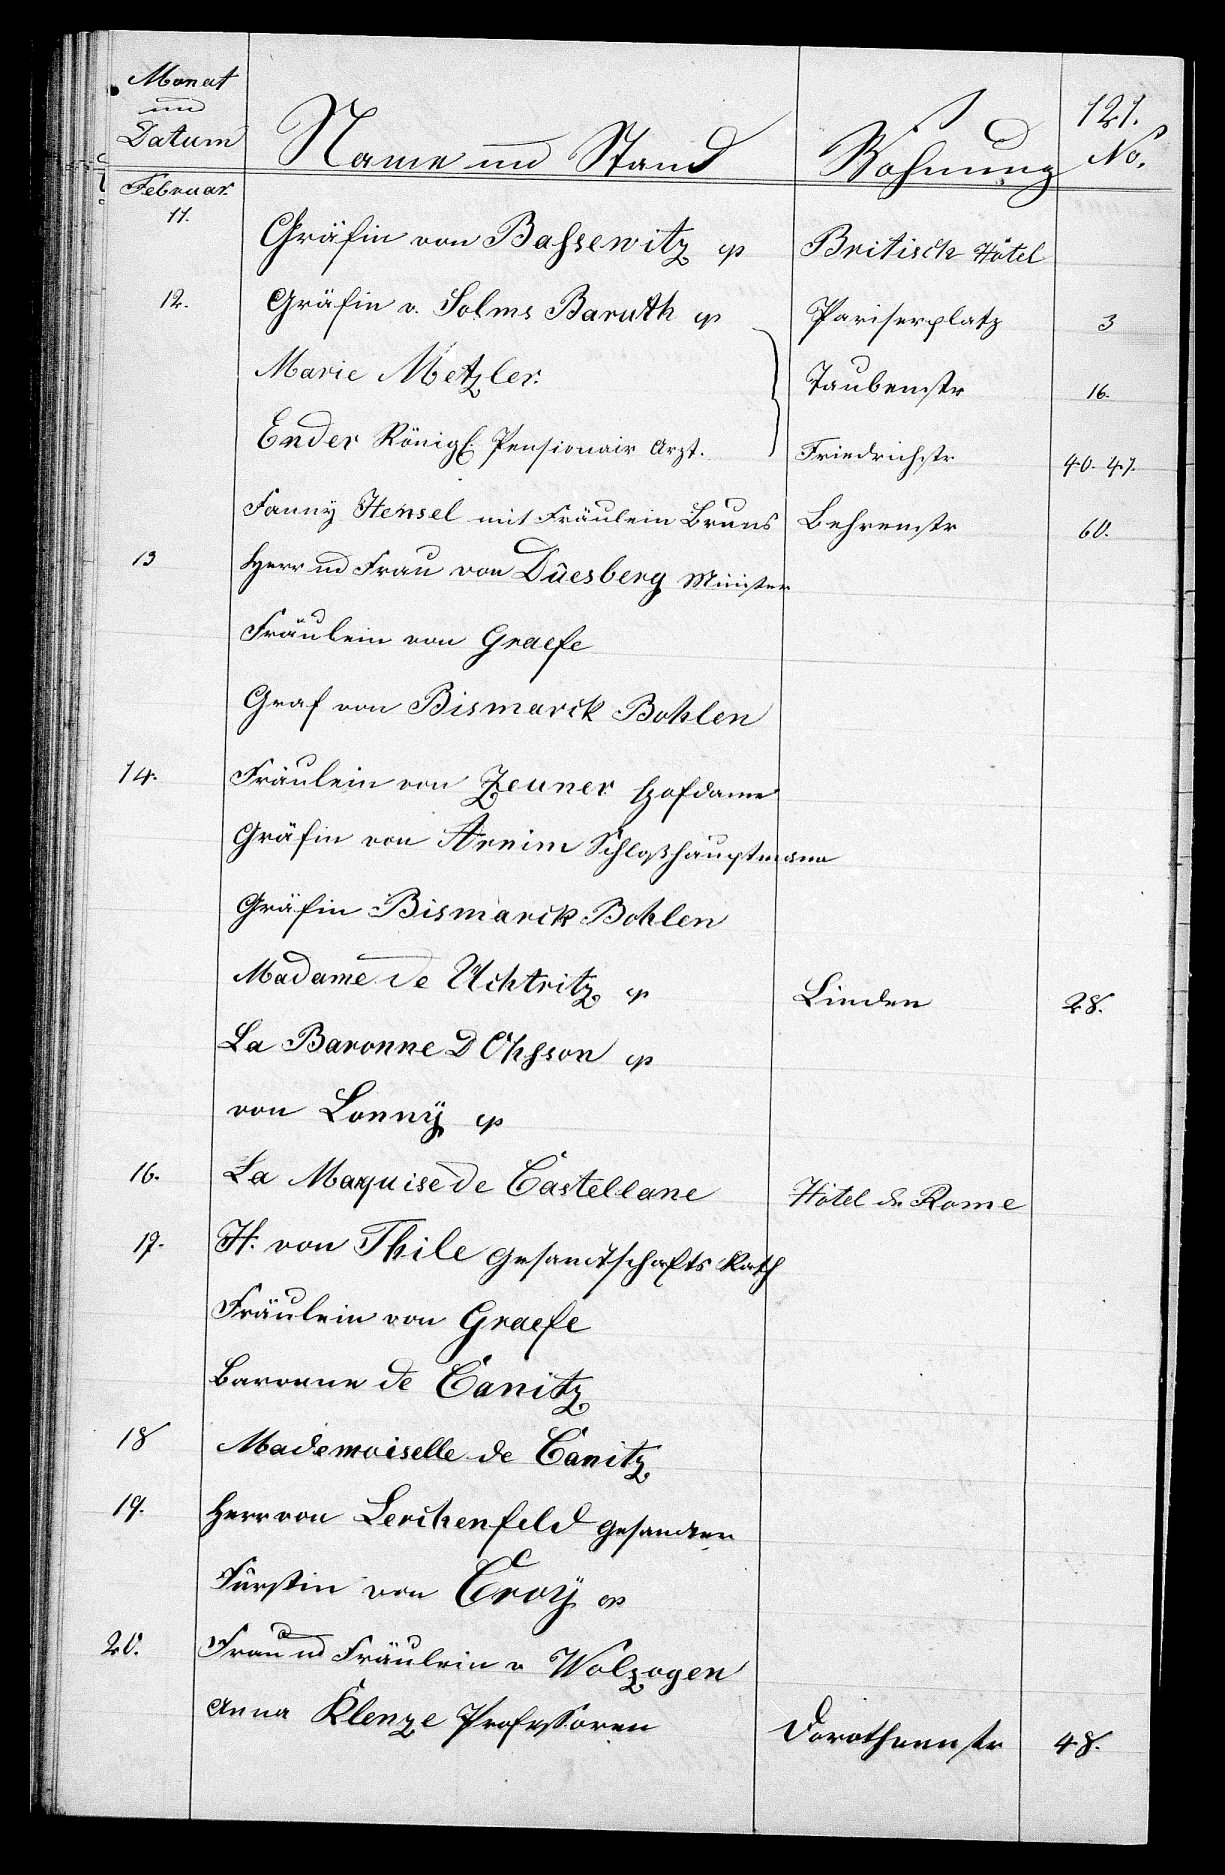 Monat
und
Datum
Name und Stand
Wohnung
121.
No.
Februar.
11.
Gräfin von Bassewitz
Britisch Hôtel
12.
Gräfin v. Solms Baruth
Pariserplatz
3
Marie Metzler.
Taubenstr
16.
Ender Königl. Pensionair Arzt.
Friedrichstr
40. 41.
Fanny Hensel mit Fräulein Bruns
Behrenstr
60.
13
Herr und Frau von Düesberg Minister
Fräulein von Graefe
Graf von Bismarck Bohlen
14.
Fräulein von Zeuner Hofdame
Gräfin von Arnim Schloßhauptmann
Gräfin Bismarck-Bohlen
Madame de Uchtritz
Linden
28.
La Baronne D Ohsson
von Lonnÿ
16.
La Marquise de Castellane
Hôtel de Rome
17.
H. von Thile Gesandtschafts Rath
Fräulein von Graefe
Baronne de Canitz
18
Mademoiselle de Canitz
19.
Herr von Lerchenfeld Gesandter
Fürstin von Croÿ
20.
Frau und Fräulein v Wolzogen
Anna Klenze Professorin
Dorotheenstr
48.